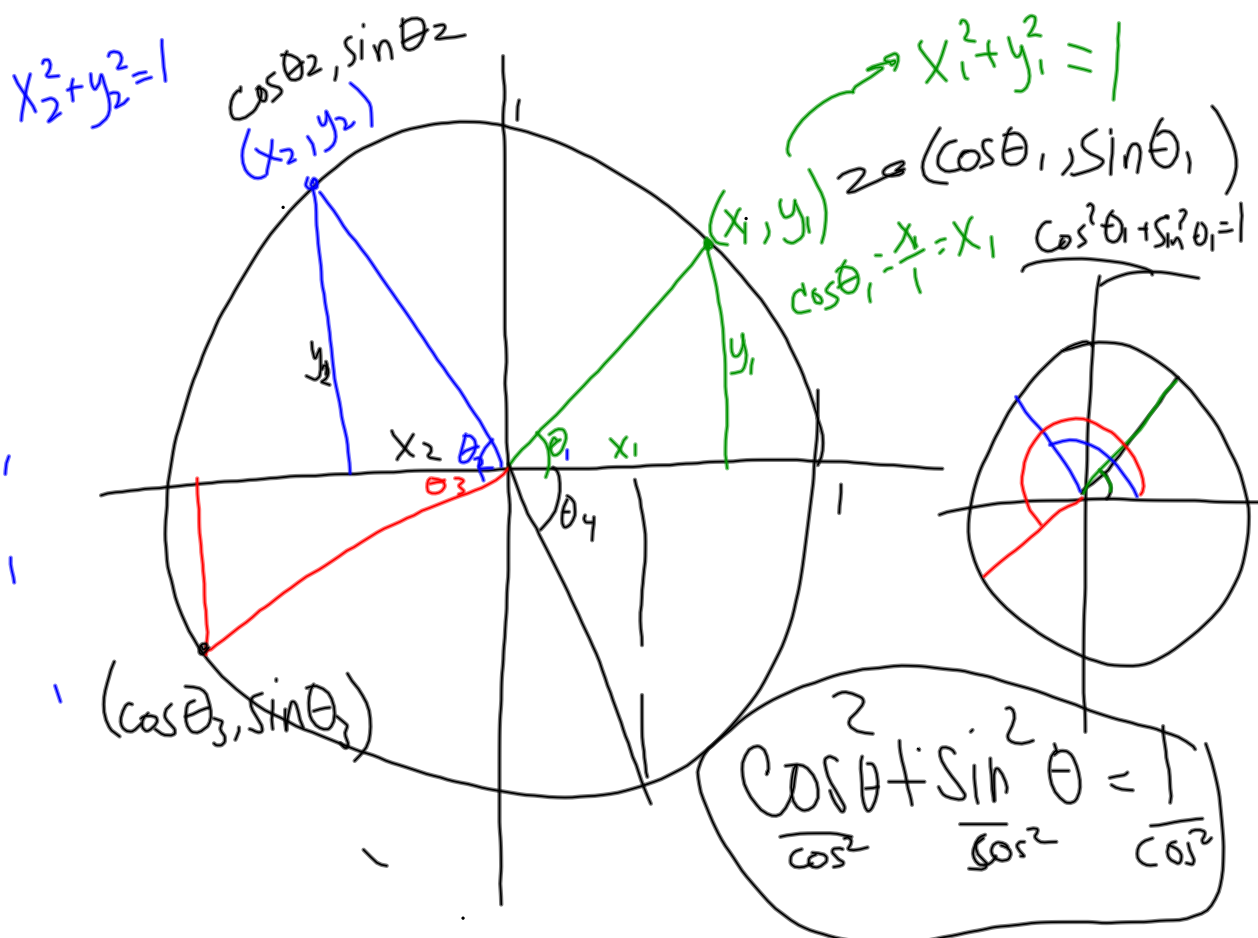 x₂²+y₂²=1
cosθ2, sinθ2
(x₂, y₂)
1
x₁²+y₁²=1
(cosθ₁, sinθ₁)
(x₁, y₁)
cosθ₁=x₁/1=x₁
cos²θ₁+sin²θ₁=1
y₂
y₁
x₂
θ₂
θ₁
x₁
θ3
θ4
1
(cosθ₃, sinθ₃)
cos²θ/cos²+sin²θ/cos²=1/cos²